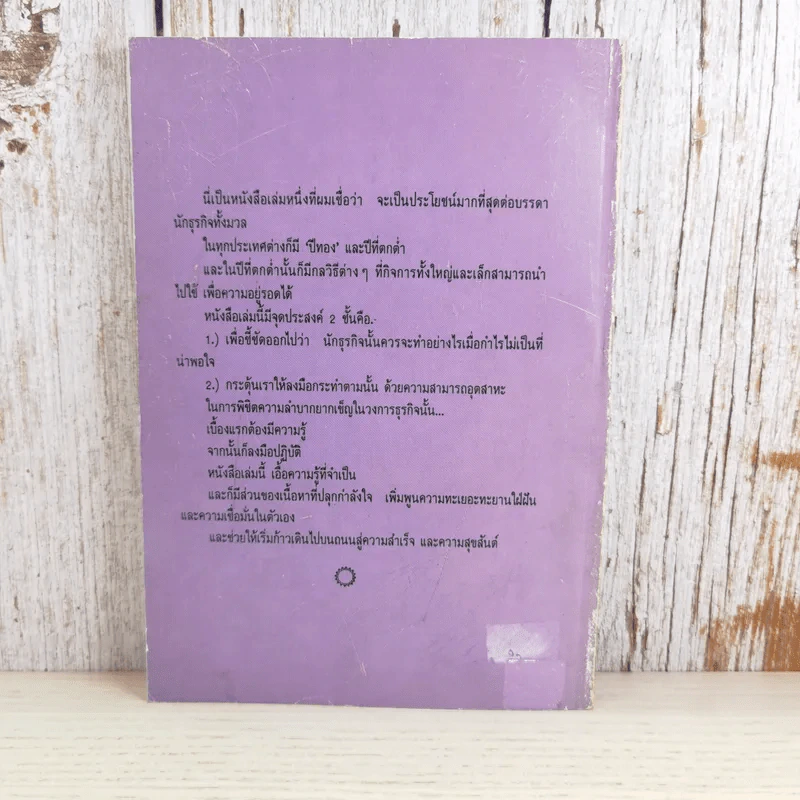 นี่เป็นหนังสือเล่มหนึ่งที่ผมเชื่อว่า จะเป็นประโยชน์มากที่สุดต่อบรรดา
นักธุรกิจทั้งมวล
ในทุกประเทศต่างก็มี 'ปีทอง' และปีที่ตกต่ำ
และในปีที่ตกต่ำนั้นก็มีกลวิธีต่าง ๆ ที่กิจการทั้งใหญ่และเล็กสามารถนำ
ไปใช้ เพื่อความอยู่รอดได้
หนังสือเล่มนี้มีจุดประสงค์ 2 ชั้นคือ.
1.) เพื่อชี้ชัดออกไปว่า นักธุรกิจนั้นควรจะทำอย่างไรเมื่อกำไรไม่เป็นที่
น่าพอใจ
2.) กระตุ้นเราให้ลงมือกระทำตามนั้น ด้วยความสามารถอุตสาหะ
ในการพิชิตความลำบากยากเข็ญในวงการธุรกิจนั้น...
เบื้องแรกต้องมีความรู้
จากนั้นก็ลงมือปฏิบัติ
หนังสือเล่มนี้ เอื้อความรู้ที่จำเป็น
และก็มีส่วนของเนื้อหาที่ปลุกกำลังใจ เพิ่มพูนความทะเยอะทะยานใฝ่ฝัน
และความเชื่อมั่นในตัวเอง
และช่วยให้เริ่มก้าวเดินไปบนถนนสู่ความสำเร็จ และความสุขสันต์